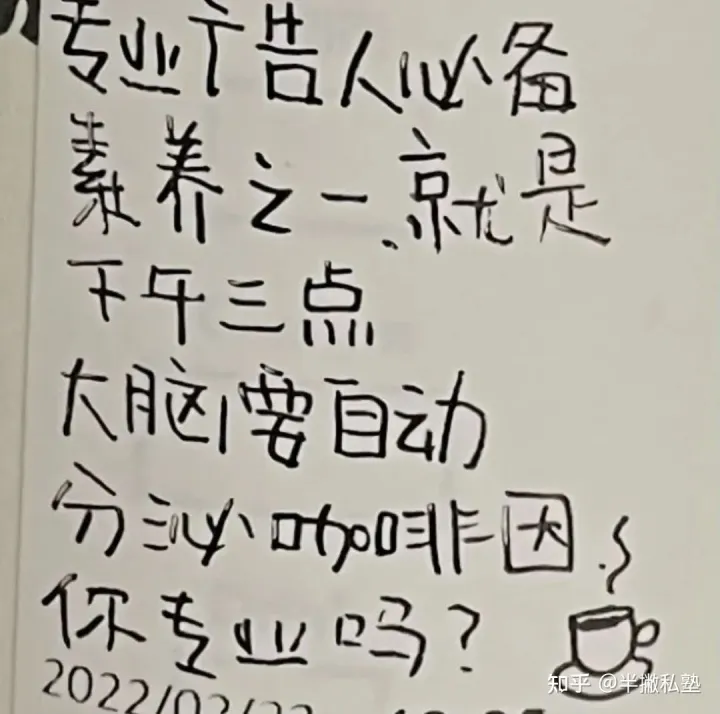 专业广告人必备
素养之一.就是
下午三点
大脑要自动
分泌咖啡因.
你专业吗？
知乎 @半撇私塾